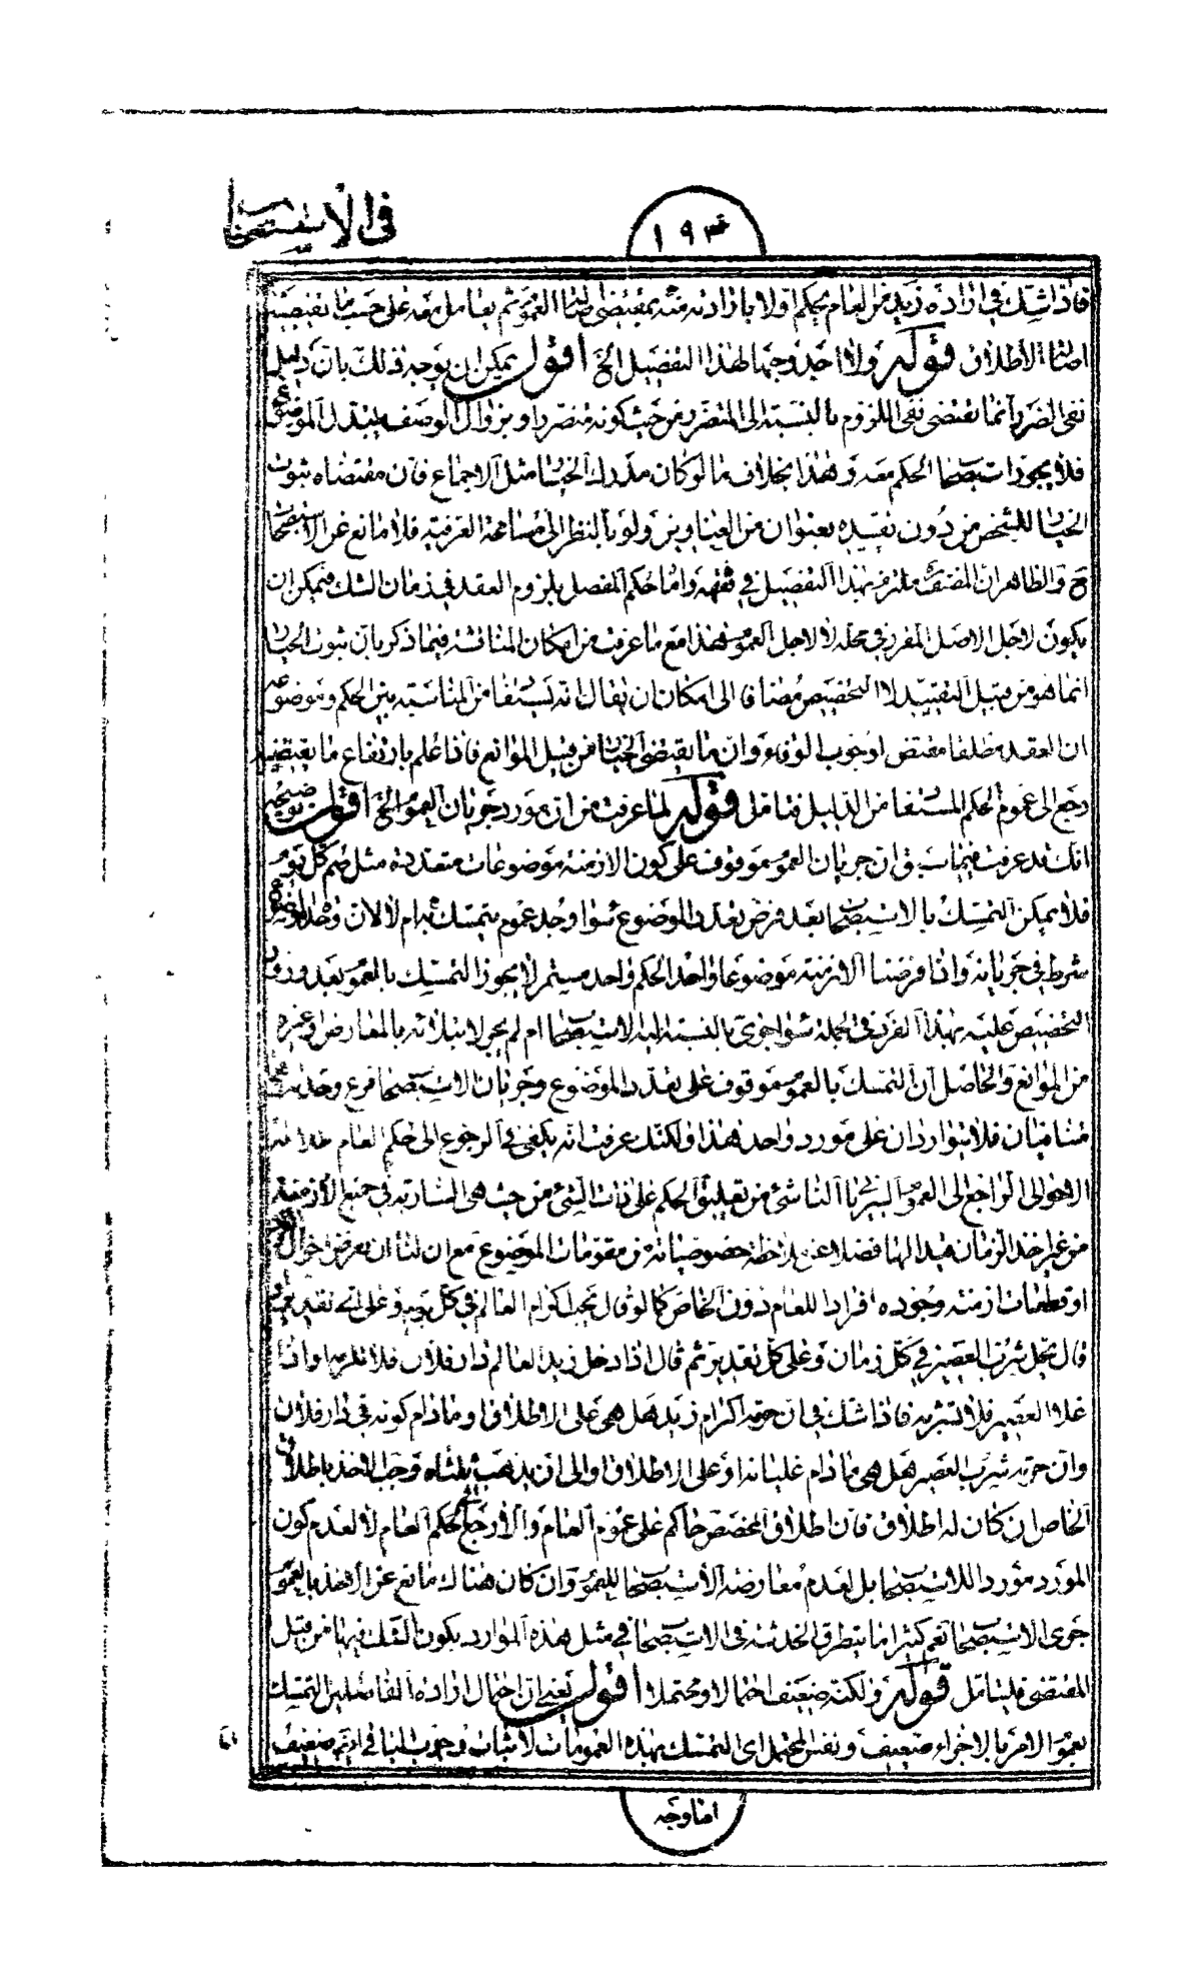 في الاستصحاب
١٩٣
فاذا شك في ارادة زيد من العام يحكم اولا بارادته منه بمقتضى اصالة العموم ثم يعامل معه على حسب ما يقتضيه
اصالة الاطلاق قوله ولا اجد وجها لهذا التفصيل الخ اقول يمكن ان يوجه ذلك بان دليل
نفى الضرر انما يقتضى نفى اللزوم بالنسبة الى المتضرر من حيث كونه متضررا وبزوال الوصف يتبدل الموضوع
فلا يجوز استصحاب الحكم معه وهذا بخلاف ما لو كان مدرك الخيار مثل الاجماع فان مقتضاه ثبوت
الخيار للشخص من دون تقييده بعنوان من العناوين ولو بالنظر الى مسامحة العرفية فلا مانع عن الاستصحاب
ح والظاهر ان المصنف ملتزم بهذا التفصيل في فقهه واما حكم المفصل بلزوم العقد في زمان الشك فيمكن ان
يكون لاجل الاصل المقرر في محله لا لاجل العموم هذا مع ما عرفت من امكان المناقشة فيما ذكر بان ثبوت الخيار
انما هو من قبيل التقييد لا التخصيص مضافا الى امكان ان يقال انه يستفاد من المناسبة بين الحكم وموضوعه
ان العقد مطلقا مقتض لوجوب الوفاء وان ما يقتضى الخيار من قبيل الموانع فاذا علم بارتفاع ما يقتضيه
رجع الى عموم الحكم المستفاد من الدليل فتامل قوله لما عرفت من ان مورد جريان العموم الخ اقول توضيحه
انك قد عرفت فيما سبق ان جريان العموم موقوف على كون الازمنة موضوعات متعددة مثل صم كل يوم
فلا يمكن التمسك بالاستصحاب بعد فرض تعدد الموضوع سواء وجد عموم يتمسك به ام لا لان وحدة الموضوع
شرط في جريانه واذا فرضنا الازمنة موضوعا واحدا لحكم واحد مستمر لا يجوز التمسك بالعموم بعد ورود
التخصيص عليه بهذا الفرد في الجملة سواء جرى بالنسبة اليه الاستصحاب ام لم يجر لابتلائه بالمعارض وغيره
من الموانع والحاصل ان التمسك بالعموم موقوف على تعدد الموضوع وجريان الاستصحاب فرع وحدته فهما
متنافيان فلا يتواردان على مورد واحد هذا ولكنك عرفت انه يكفى في الرجوع الى حكم العام
الاحوالى الراجع الى العموم السريانى الناشئ من تعليق الحكم على ذات الشئ من حيث هى السارية في جميع الازمنة
من غير اخذ الزمان قيدا لها فضلا عن ملاحظة خصوصياته من مقومات الموضوع مع ان لنا ان نفرض احوال
او قطعات ازمنة وجوده افرادا للعام دون الخاص كما لو قال يجب اكرام العالم في كل يوم وعلى اى تقدير
قال يحل شرب العصير في كل زمان وعلى كل تقدير ثم قال اذا دخل زيد العالم دار فلان فلا تكرمه او اذا
غلا العصير فلا تشربه فاذا شك في ان حرمة اكرام زيد هل هى على الاطلاق او ما دام كونه في دار فلان
وان حرمة شرب العصير هل هى ما دام غليانه او على الاطلاق والى ان يذهب ثلثاه وجب الاخذ باطلاق
الخاص ان كان له اطلاق فان اطلاق المخصص حاكم على عموم العام والا رجع الى حكم العام لا لعدم كون
المورد موردا للاستصحاب بل لعدم معارضة الاستصحاب للعموم وان كان هناك مانع عن الاخذ بالعموم
جرى الاستصحاب نعم كثيرا ما يتطرق الخدشة في الاستصحاب في مثل هذه الموارد بكون الشك فيها من قبيل
المقتضى فليتامل قوله ولكنه ضعيف احتمالا ومحتملا اقول يعنى ان احتمال ارادة القائلين التمسك
بعموم الامر بالاجزاء ضعيف ونفس المحتمل اى التمسك بهذه العمومات لاثبات وجوب الباقى ايضا ضعيف
اما وجه